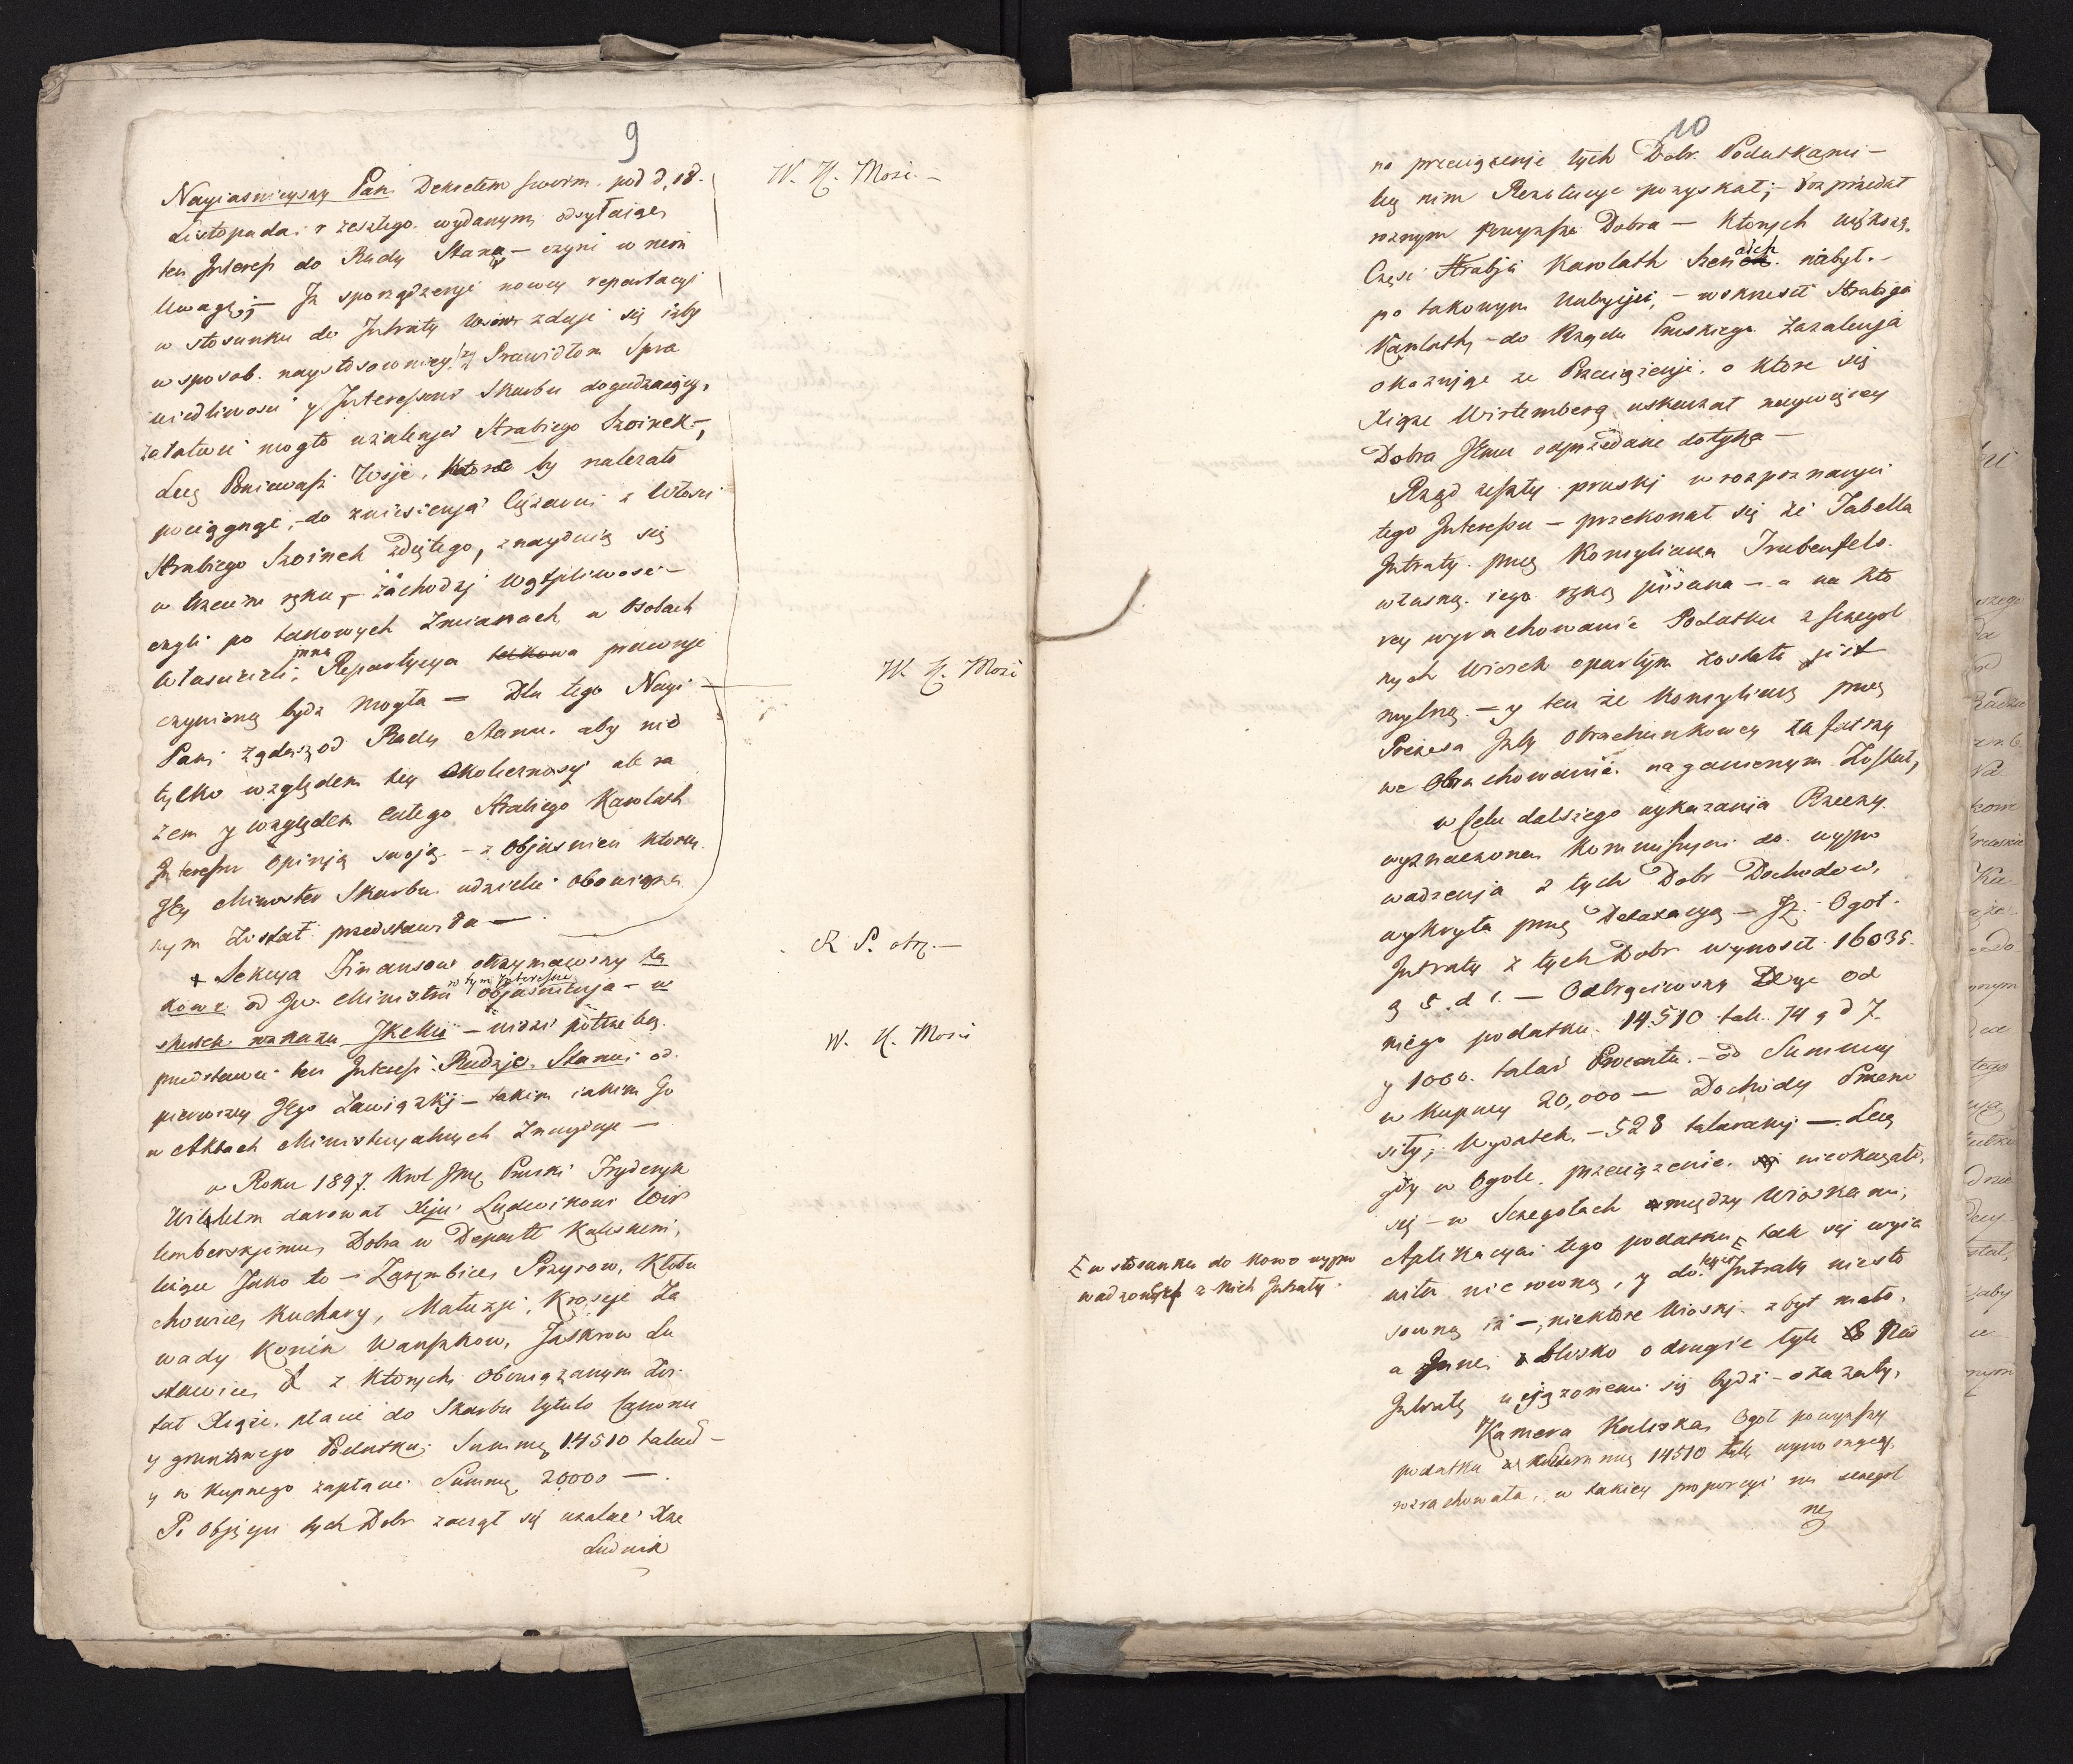 9
Nayiasnieyszy Pan Dekretem swoim pod d. 18.
Listopada r zeszłego wydanym, odsyłaiąc
ten Interess do Rady Stanu — czyni w nem
Uwagę, — Iz sporządzenie nowey repartacyi
w stosunku do Intraty wiosek zdaje się iżby
w sposob naystosownieyszy Prawidłom Spra
wiedliwosci y Interessowi Skarbu dogadzaiący,
załatwić mogło użalenie Hrabiego Szoinek —,
Lecz Ponieważ Wsie, które by nalezało
pociągnąć, — do zniesienia Ciężaru z Włosci
Hrabiego Szoinek zdiętego, znayduią się
w trzecim ręku, — zachodzi Wątpliwosc —
czyli po takowych Zmianach, w Osobach
Własicieli, inna Repartycya takowa prawnie
czynioną bydz mogła — Dla tego Nayi
Pan żąda, od Rady Stanu, aby nie
tylko względem tey okolicznosci ale ra
zem y względem całego Hrabiego Karolath
Interessu Opinią swoją — z Objasnien ktorych
Jey Minister Skarbu udzielić obowiąza
nym został przedstawiła —
+ Sekcya Finansow otrzymawszy ta
kowe od Jw. Ministra w tym Interessie objasnienia — w
skutek nakazu JKMci — widzi potrzebę
przedstawić ten Interess Radzie Stanu od
pierwszey Jego Zawiązki — takim iakim Go
w Aktach Ministeryalnych Znayduje —
w Roku 1897. Krol Jmc Pruski Fryderyk
Wilhelm darował Xięciu Ludwikowi Wir
temberskiemu, Dobra w Departt Kaliskim,
leżące Jako to — Zarembice, Przyrow, Kłobu
chowice, Kuchary, Matuzje, Krasice Za
wady Konin Wanszkow, Jaskrow Lu
sławice, z ktorych obowiązanym zos
tał Xiąże, płacić do Skarbu tytulo Canonu
y gruntowego Podatku, Summę 14510 talar —
y w kupnego zapłacic Summę, 20000 —
Po objęciu tych Dobr zaczął się uzalac Xże
Ludwik
W. H. Mosi. —
W. H. Mosi
R. P. otrz. —
W. H. Mosi
10
na przeciążenie tych Dobr Podatkami —
Nim Rezolucye pozyskał; — Rosprzedał
roznym Powyższe Dobra — Ktorych większą
Częsc Hrabia Karolath Szenaich nabył. —
po takowym Nabyciu, — wskrzesił Hrabia
Karolath, — do Rządu Pruskiego Zazalenia
okazuiąc ze Przeciążenie, o ktore się
Xiąże Wirtemberg uskarzał naywięcey
Dobra Jemu odprzedane dotyka —
Rząd zeszły pruski w rozpoznaniu
tego Interessu — przekonał się że Tabella
Intraty przez Konsyliarza Trubenfels
własną iego ręką pisana — a na kto
rey wyrachowanie Podatku z szczegol
nych wiosek opartym zostało jest
mylną — y ten że Konsyliarz przez
Prezesa Izby Obrachunkowey za fałszy
we Obrachowanie naganionym Został,
w Celu dalszego wykazania Rzeczy
wyznaczona Kommissya do wypro
wadzenia z tych Dobr Dochodow,
wykryła przez Detaxacyą — Iż Ogoł
Intraty z tych Dobr wynosił 16035
g 5. d 1. — Odtrąciwszy Więc od
niego podatku 14.510 tal. 14 g d 7
y 1000. talar Procentu — od Summy
w kupney 20,000 — Dochody Przeno
siły, Wydatek — 528 talarami — Lecz
gdy w Ogole przeciążenie nieokazało
się — w Szczegołach między Wioskami,
Aplikacyia tego podatku, E tak się wyia
wiła nierowną, y do teyże Intraty niesto
sowną iż —, niektore Wioski zbyt mało,
a Inne blisko o drugie tyle Nad
Intratę uciążonemi się bydź — okazały,
Kamera Kaliska, Ogoł powyższy
podatku 14510 tale wynoszący
rozrachowała, w takiey proporcyi na szczegol
ne
E w stosunku do nowo wypro
wadzoney z nich Intraty.